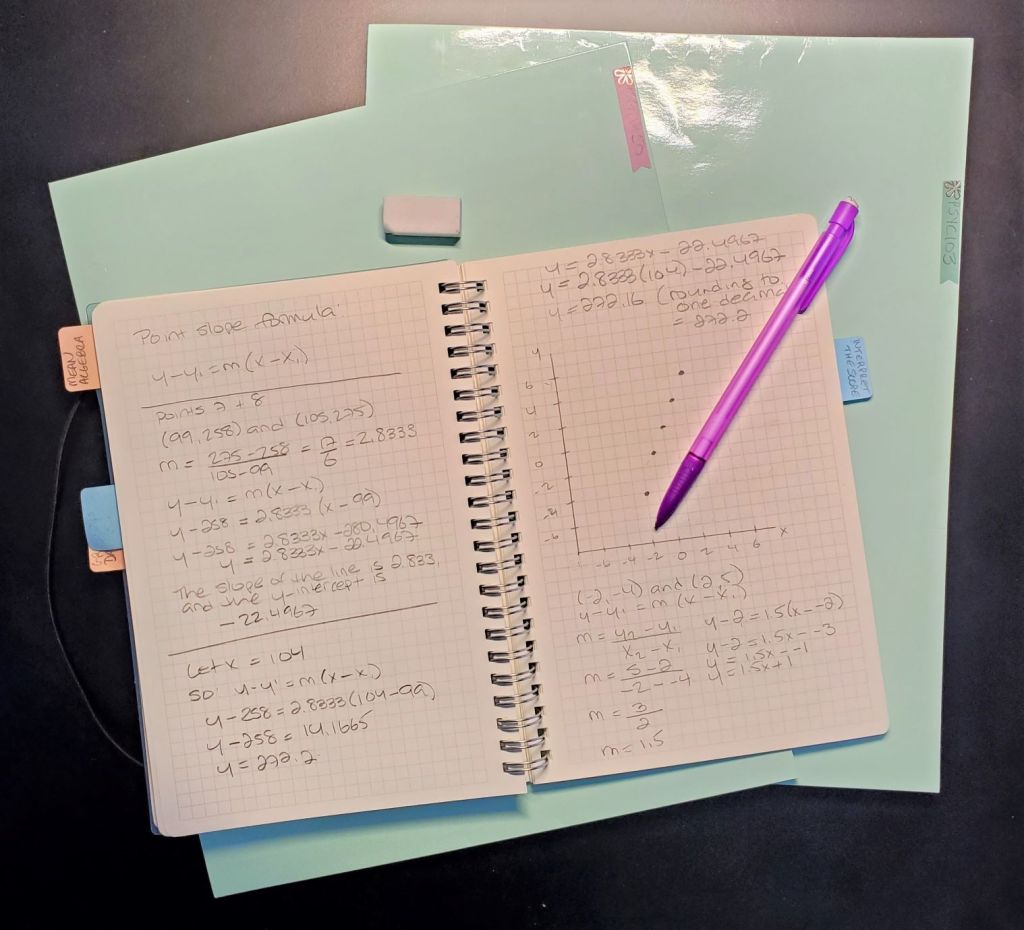 Point slope formula:
y-y₁ = m(x-x₁)
points 7 + 8
(99, 258) and (105, 275)
m = 275-258 / 105-99 = 17/6 = 2.8333
y-y₁ = m(x-x₁)
y-258 = 2.8333 (x-99)
y-258 = 2.8333x - 280.4967
y = 2.8333x - 22.4967
The slope of the line is 2.833,
and the y-intercept is
-22.4967
Let x = 104
so: y-y₁ = m(x-x₁)
y-258 = 2.8333(104-99)
y-258 = 14.1665
y = 272.2
y = 2.8333x - 22.4967
y = 2.8333(104) - 22.4967
y = 272.16 (rounding to
one decimal
= 272.2
y
6
4
2
0
-2
-4
-6
-6 -4 -2 0 2 4 6 x
(-2,-4) and (2,5)
y-y₁ = m(x-x₁)
m = y₂-y₁ / x₂-x₁
m = 5-2 / -2--4
m = 3/2
m = 1.5
y-2 = 1.5(x--2)
y-2 = 1.5x--3
y = 1.5x--1
y = 1.5x+1
MEAN
ALGEBRA
INTERPRET
THE SCORE
PSYC103